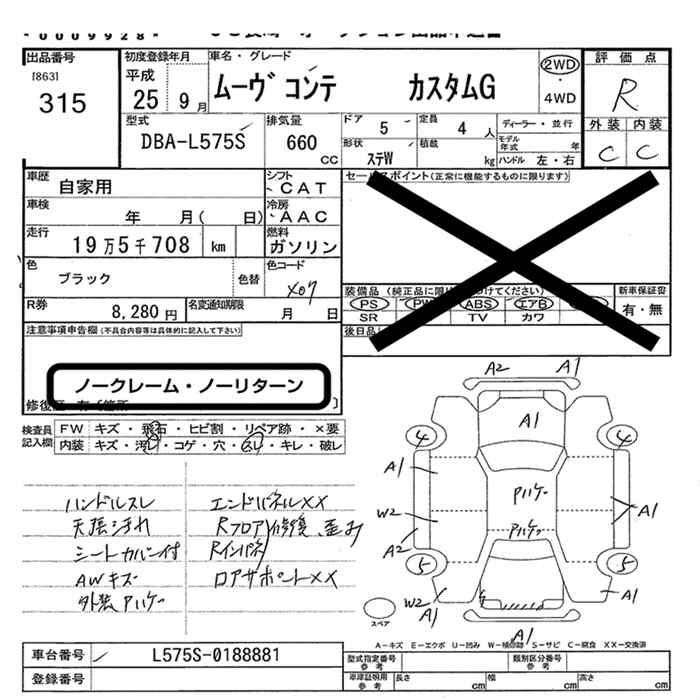 0009928
出品番号
[863]
315
初度登録年月
平成
25 9月
車名・グレード
ムーヴコンテ カスタムG
2WD
・
4WD
評価点
R
外装 内装
C C
型式
DBA-L575S
排気量
660
CC
ドア 5
定員 4 人
ディーラー・並行
形状 ステW
積載 kg
モデル年式 年
ハンドル 左・右
車歴
自家用
シフト
CAT
セールスポイント(正常に機能するものに限ります)
車検
年 月( 日)
冷房
AAC
走行
19万5千708 km
燃料
ガソリン
色
ブラック
色替
色コード
X07
装備品(純正品に限り
けてください)
PS PW ABS エアB
SR TV カワ
新車保証書
有・無
R券
8,280円
名変通知期限
月 日
後日品
注意事項申告欄(不具合内容等は具体的に記入して下さい)
ノークレーム・ノーリターン
修復歴 有
検査員記入欄
FW キズ・飛石・ヒビ割・リペア跡・×要
内装 キズ・汚レ・コゲ・穴・スレ・キレ・破レ
ハンドルスレ
天張汚れ
シートカバー付
AWキズ
外装Pハゲ
エンドパネルXX
Rフロア 修復、歪み
Rインパネ
ロアサポートXX
A2 A1
A1
4 4
A1
Pハゲ
W2
A1
Pハゲ
A2
5 5
W2
A1
A1
スペア
A1
A-キズ E-エクボ U-凹み W-補修跡 S-サビ C-腐食 XX-交換済
車台番号
L575S-0188881
登録番号
型式指定番号
参考
類別区分番号
参考
車庫証明用
参考
長さ cm
幅 cm
高さ cm